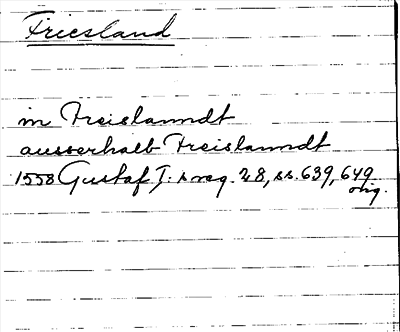 Friesland
in Freislanndt
ausserhalb Freislanndt
1558 Gustaf I:s reg. 28, ss. 639, 649
orig.